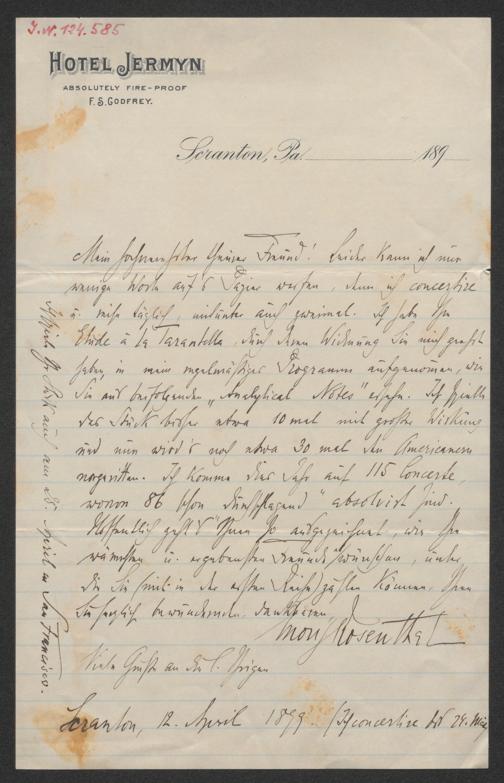 I.N. 124.585
HOTEL JERMYN
ABSOLUTELY FIRE-PROOF
F. S. GODFREY.
Scranton, Pa 189
Mein hochverehrter theurer Freund! Leider kann ich nur
wenige Worte auf's Papier werfen, denn ich concertire
u. reise täglich, mitunter auch zweimal. Ich habe Ihre
Etude à la Tarantella, durch deren Widmung Sie mich geehrt
haben, in mein regelmäßiges Programm aufgenommen, wie
Sie aus beifolgenden „Analytical Notes" ersehen. Ich spielte
das Stück bisher etwa 10 mal mit großer Wirkung
und nun wird's noch etwa 30 mal den Americanern
vorgeritten. Ich komme dies Jahr auf 115 Concerte,
wovon 86 schon „durchschlagend" absolvirt sind.
Hoffentlich geht's Ihnen so ausgezeichnet, wie Ihre
wärmsten u. ergebensten Freunde wünschen, unter
die Sie in der ersten Reihe zählen können, Ihren
Sie herzlich bewundernden, dankbaren
Moriz Rosenthal
Viele Grüße an die l. Ihrigen
Scranton, 12. April 1899. (Ich concertire bis 24. Mai
Ich spiele Ihr Stück auch am 28. April in San Francisco.